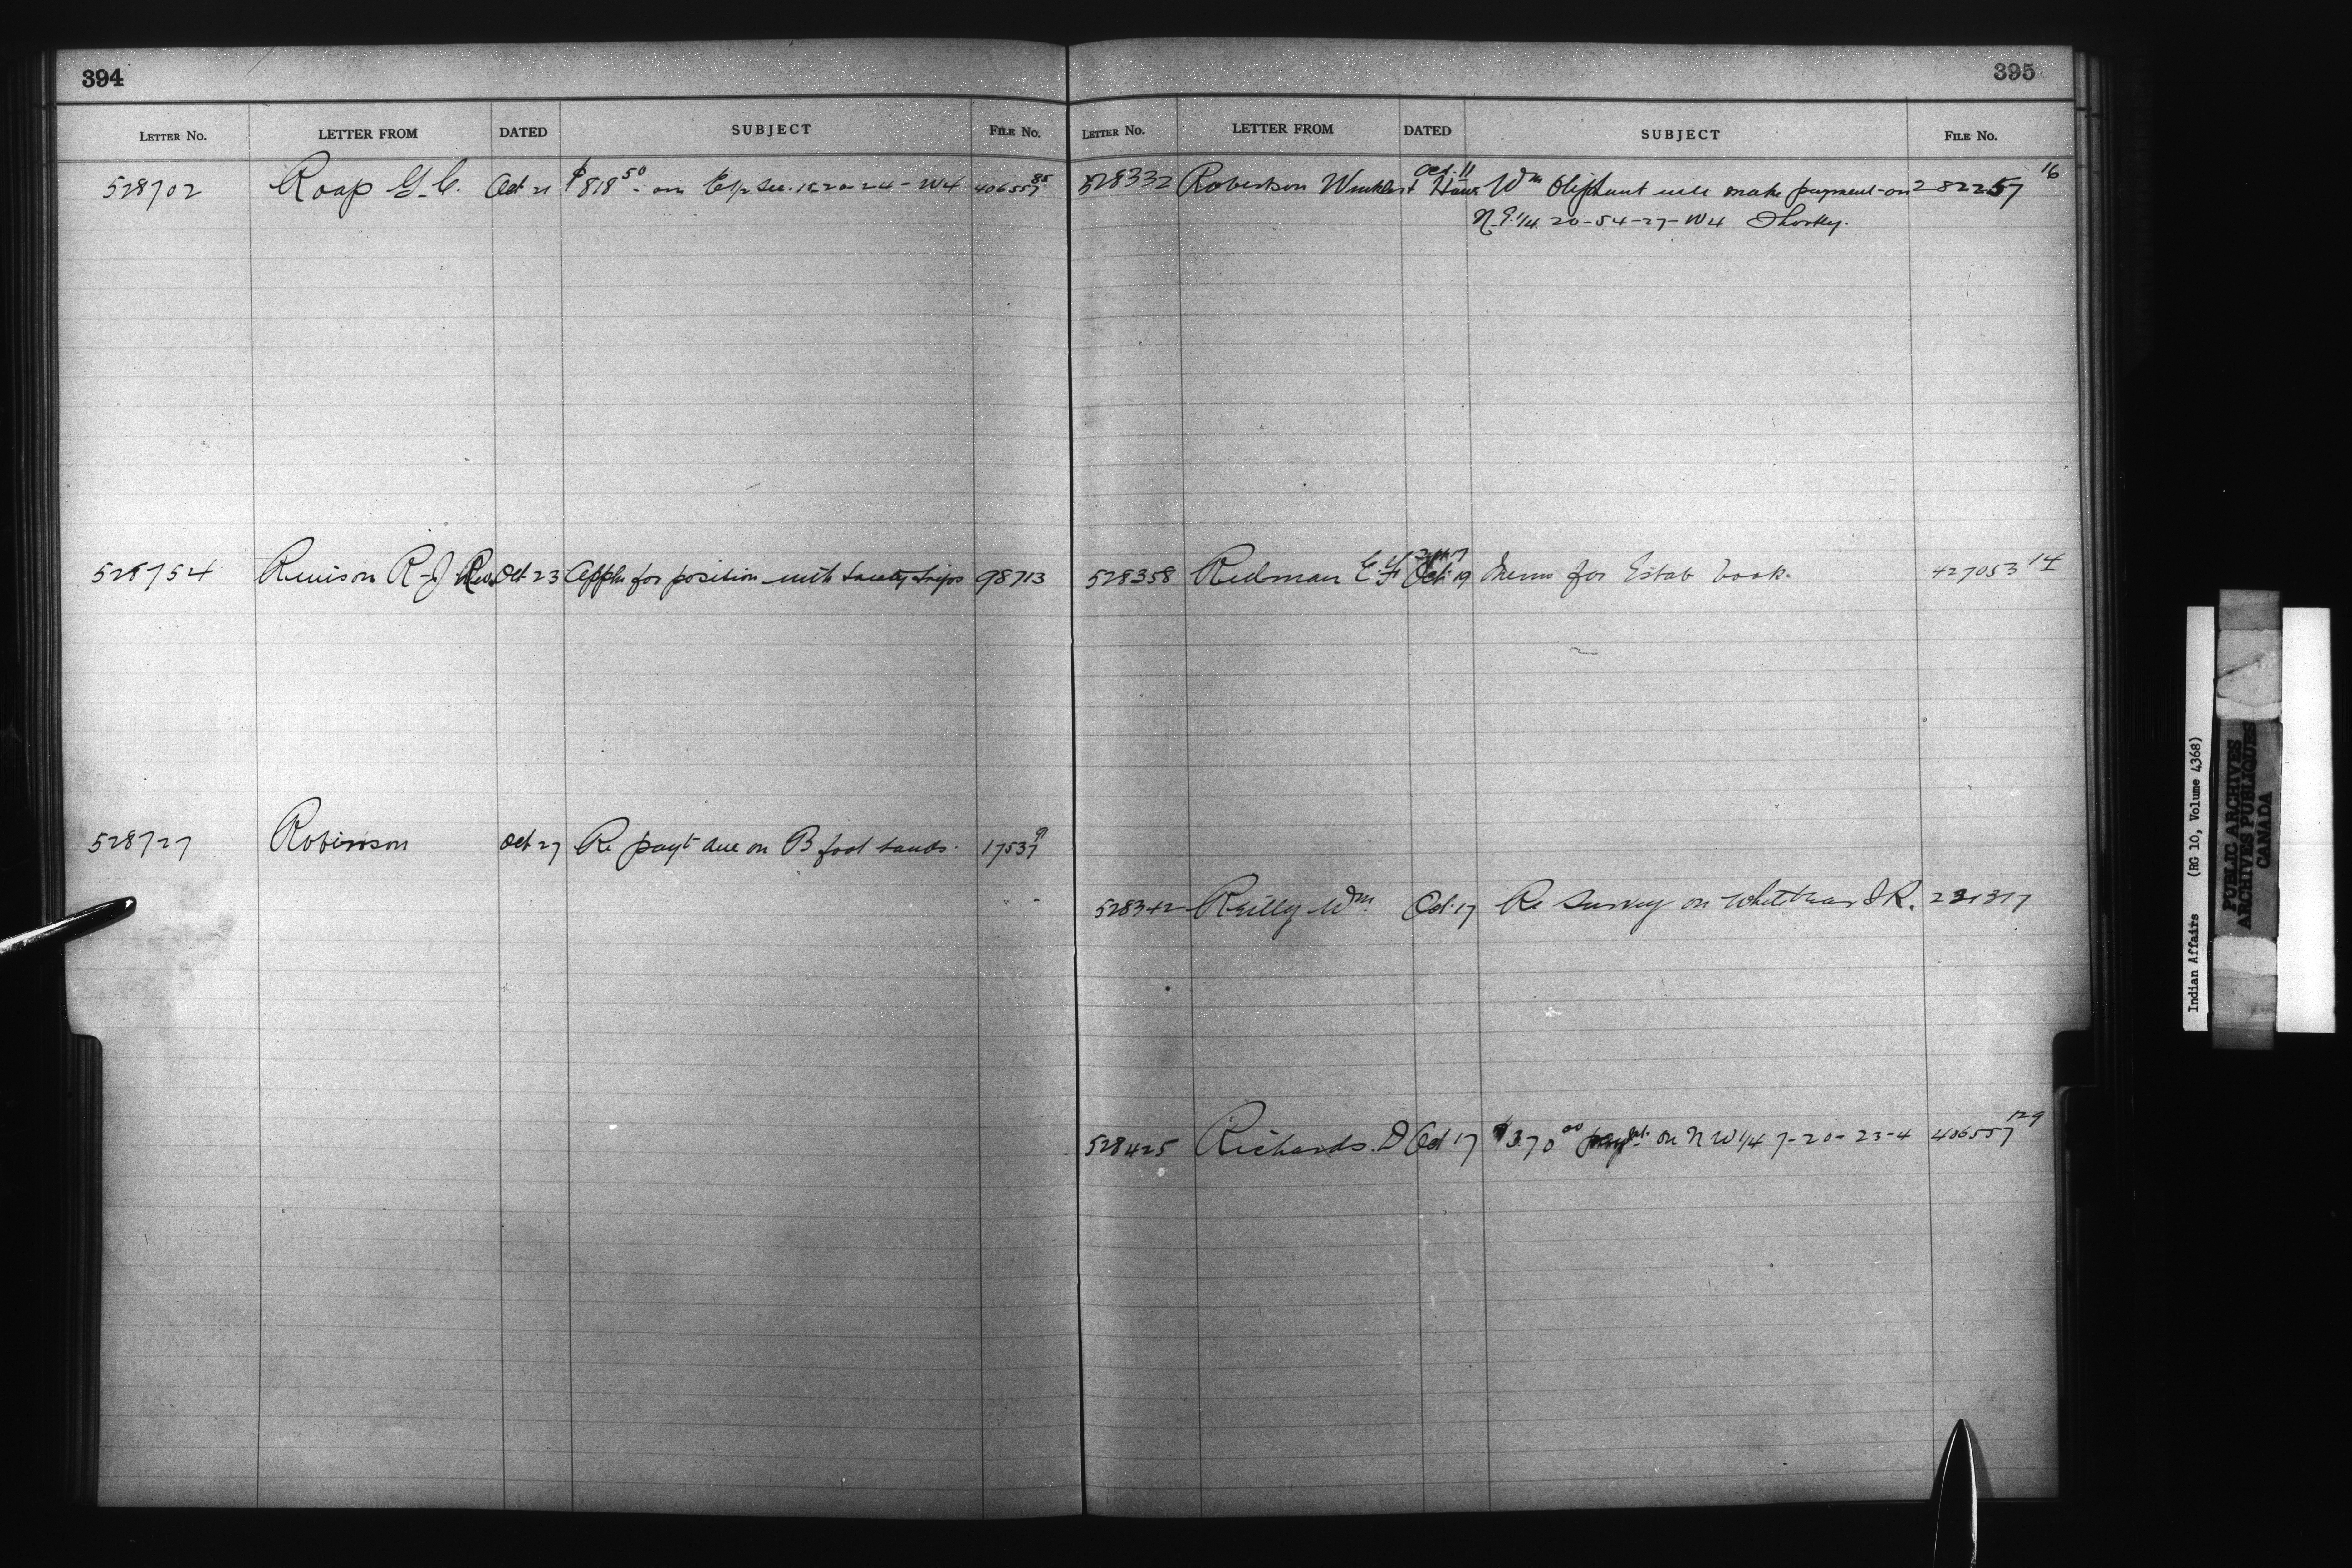 394
LETTER NO. LETTER FROM DATED SUBJECT FILE NO.
528702 Roap G. C. Oct 21 $818 50 - on E1/2 Sec. 15-20-24-W4 406557 85
528754 Renison R-J Rev Oct 23 Appln for position with treaty trips 98713
528727 Robinson Oct 27 Re payt due on B foot lands. 17537 91
395
LETTER NO. LETTER FROM DATED SUBJECT FILE NO.
528332 Robertson Winkler & Oct. 11 Wm Oliphant will make payment on 282257 16
N.E. 1/4 20-54-27-W4 Shortly.
528358 Redman E. Oct 19 Memo for Estab book. 427053 14
528342 Reilly Wm. Oct 17 Re Survey on Whitebear I R. 221317
528425 Richards. D Oct 17 $370 00 payt. on N W 1/4 7-20-23-4 406557 129
Indian Affairs (RG 10, Volume 4368)
PUBLIC ARCHIVES
ARCHIVES PUBLIQUES
CANADA